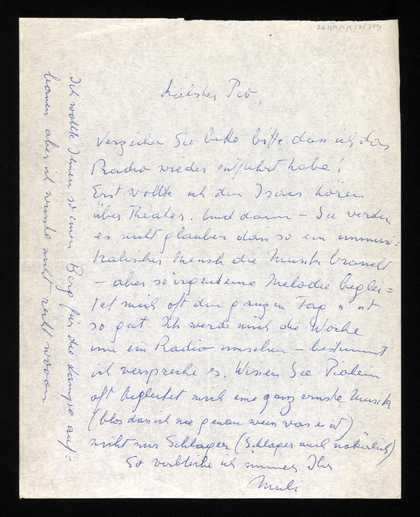 Liebster Pio,
Verzeihen Sie bitte bitte dass ich das
Radio wieder entführt habe!
Erst wollte ich den hören
über Theater. Und dann – Sie werden
es nicht glauben dass so ein unmusi-
kalischer Mensch die Musik braucht
– aber so irgendeine Melodie beglei=
tet mich oft den ganzen Tag u ist
so gut. Ich werde mich die Woche
um ein Radio umsehen – bestimmt
ich verspreche es. Wissen Sie
oft begleitet mich eine ganz ernste Musik
(blos dass ich nie genau weiss was es ist)
nicht nur Schlager (Schlager auch natürlich)
So verbleibe ich immer Ihr
Ich wollte Ihnen so einen Bag für die Lampe auf=
aber ich wusste nicht recht woran